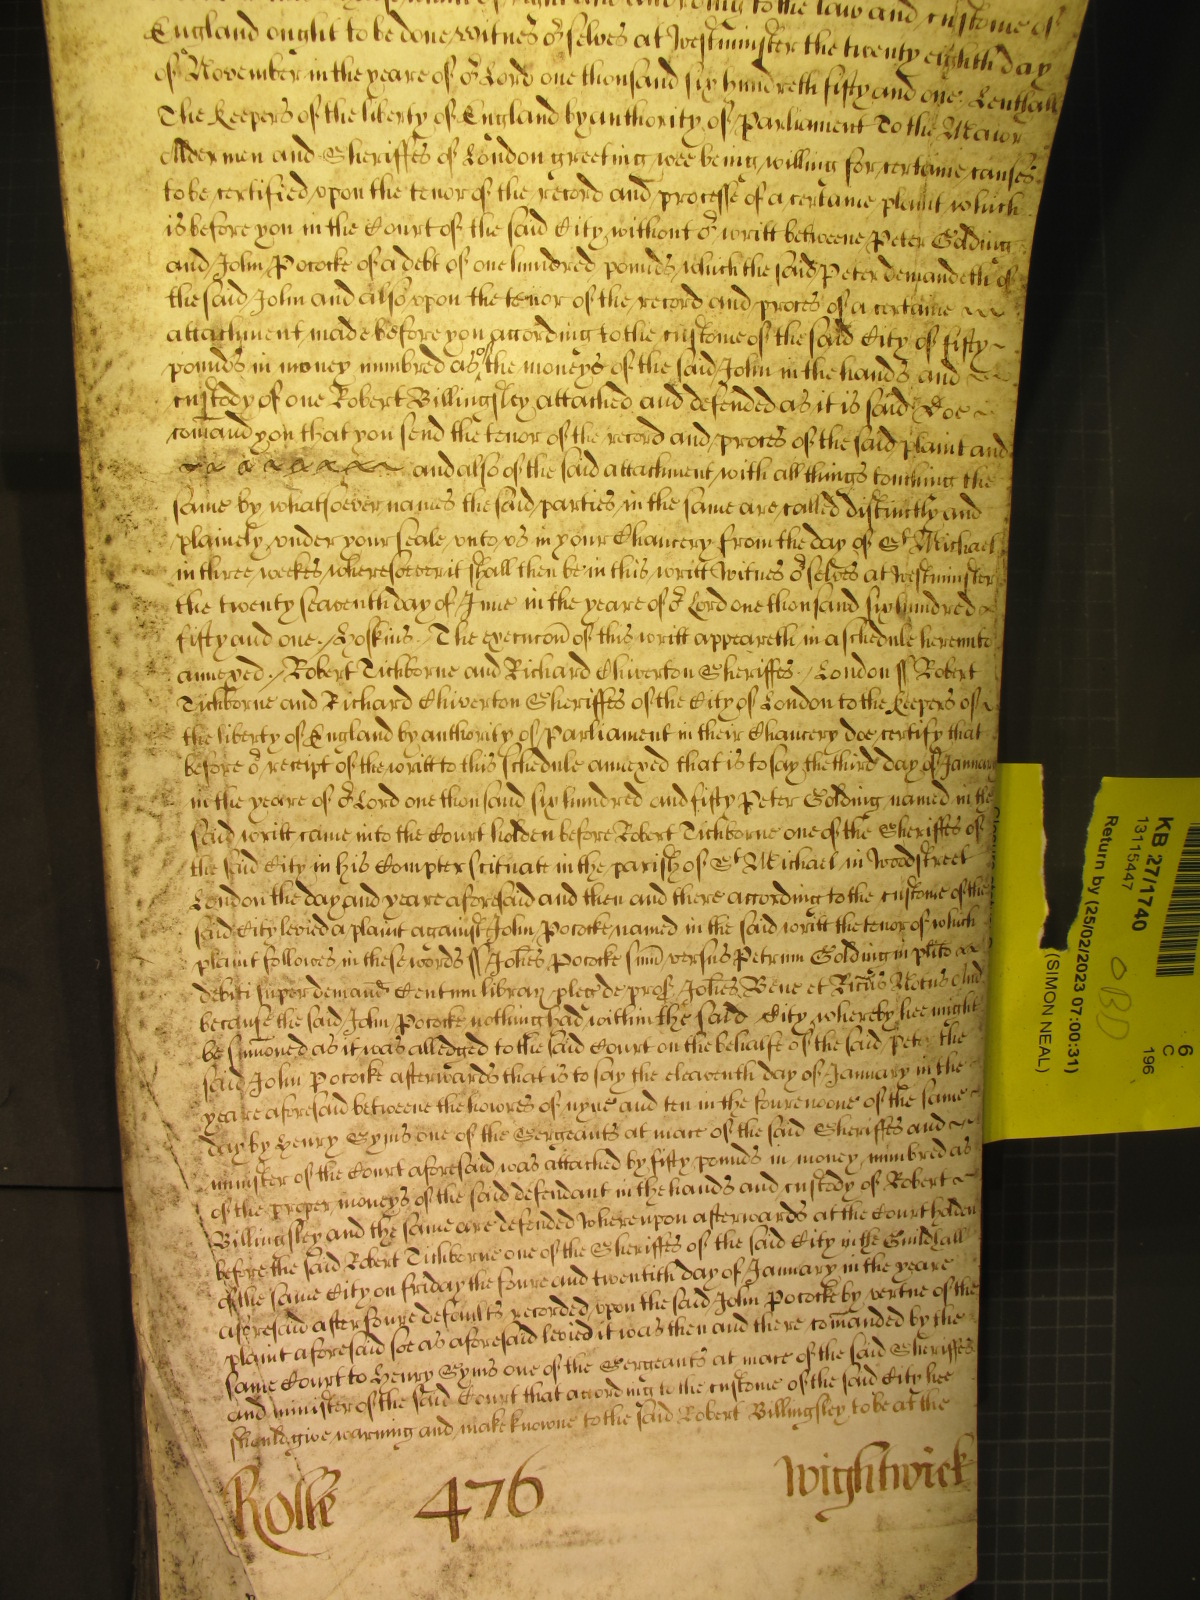 to the law and custome of
England ought to be done witnes or selves at Westminster the twenty eighth day
of November in the yeare of or Lord one thousand six hundreth fifty and one Lenthall
The keepers of the liberty of England by authority of Parliament To the Maior
Aldermen and Sheriffes of London greeting wee being willing for certaine causes
to be certified upon the tenor of the record and processe of a certaine plaint which
is before you in the Court of the said City without or writt betweene Peter Golding
and John Pococke of a debt of one hundred pounds which the said Peter demandeth of
the said John and also upon the tenor of the record and proces of a certaine
attachment made before you according to the custome of the said City of fifty
pounds in money numbred as of the moneys of the said John in the hands and
custody of one Robert Billingsley attached and defended as it is said Doe
comand you that you send the tenor of the record and proces of the said plaint and
and also of the said attachment with all things touching the
same by whatsoever names the said parties in the same are called distinctly and
plainely under your seale unto us in your Chancery from the day of St Michael
in three weekes wheresoever it shall then be in this writt Witnes or selves at Westminster
the twenty seaventh day of June in the yeare of or Lord one thousand six hundred
fifty and one. Hoskins. The execucon of this writt appeareth in a schedule hereunto
annexed. Robert Tichborne and Richard Chiverton Sheriffes. London ss Robert
Tichborne and Richard Chiverton Sheriffes of the City of London to the keepers of
the liberty of England by authority of Parliament in their Chancery doe certify that
before or receipt of the writt to this schedule annexed that is to say the third day of January
in the yeare of or Lord one thousand six hundred and fifty Peter Golding named in the
said writt came into the Court holden before Robert Tichborne one of the Sheriffes of
the said City in his Compter scituate in the parish of St Michael in Woodstreet
London the day and yeare aforesaid and then and there according to the custome of the
said City levied a plaint against John Pococke named in the said writt the tenor of which
plaint followes in these words ss Johes Pococke sum versus Petrum Golding in plito
debiti super demand Centum librar pleg de pros Johes Bene et Ricus Notus And
because the said John Pococke nothing had within the said City whereby hee might
be sumoned as it was alledged to the said Court on the behalfe of the said Peter the
said John Pococke afterwards that is to say the eleaventh day of January in the
yeare aforesaid betweene the howres of nyne and ten in the forenoone of the same
day by Henry Gyms one of the Sergeants at mace of the said Sheriffes and
minister of the Court aforesaid was attached by fifty pounds in money numbred as
of the proper moneys of the said defendant in the hands and custody of Robert
Billingsley and the same are defended Whereupon afterwards at the Court holden
before the said Robert Tichborne one of the Sheriffes of the said City in the Guildhall
of the same City on Friday the foure and twentith day of January in the yeare
aforesaid after foure defaults recorded upon the said John Pococke by vertue of the
plaint aforesaid soe as aforesaid levied it was then and there comanded by the
same Court to Henry Gyms one of the Sergeants at mace of the said Sheriffes
and minister of the said Court that according to the custome of the said City hee
should give warning and make knowne to the said Robert Billingsley to be at the
Rolle 476 Wightwick
KB 27/1740
13115447
Return by (25/02/2023 07:00:31)
(SIMON NEAL)
OBD
6
C
196